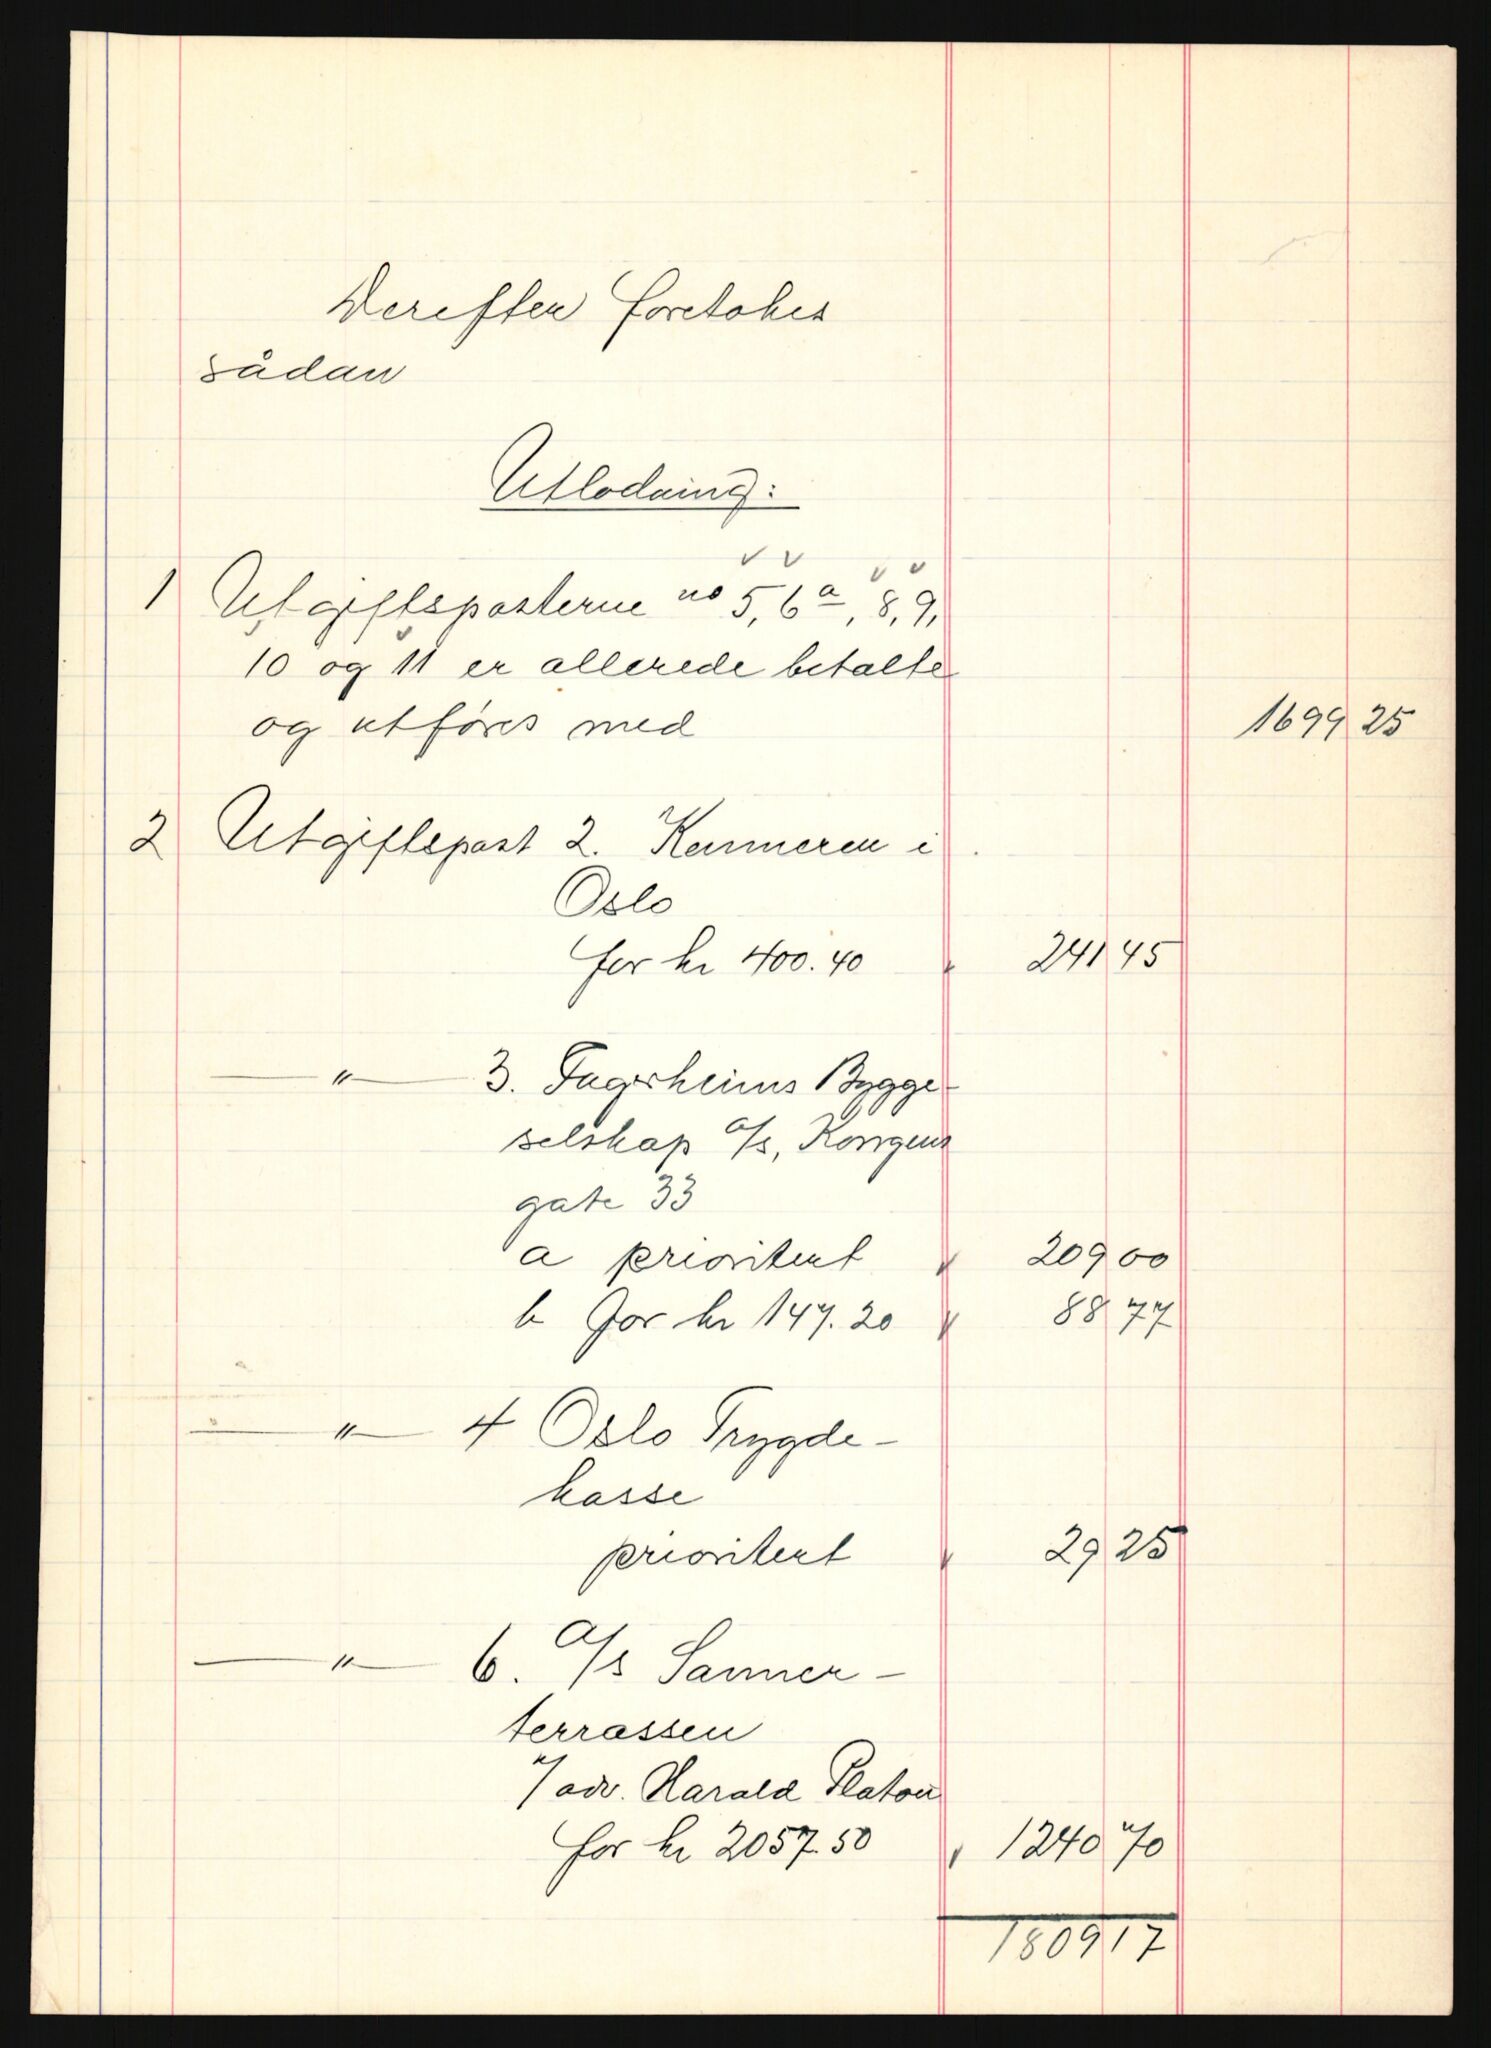 Derefter foretokes
sådan
Utlodning:
1 Utgiftsposterne no 5, 6a, 8, 9,
10 og 11 er allerede betalte
og utföres med 1699 25
2 Utgiftspost 2. Kemneren i
Oslo
for kr 400.40 241 45
— " — 3. Fagerheims Bygge-
selskap A/s, Kongens
gate 33
a prioritert 209 00
b for kr 147.20 88 77
— " — 4 Oslo Trygde-
kasse
prioritert 29 25
— " — 6. A/s Sanner-
terrassen
v/ adv. Harald Platou
for kr 2057.50 1240 70
1809 17